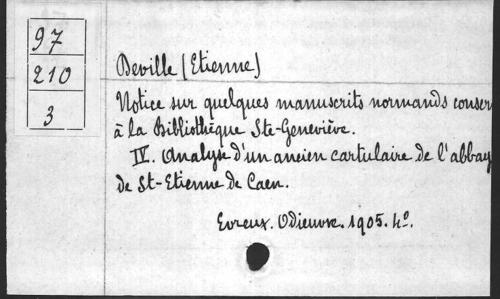 97
210
3
Deville (Etienne)
Notice sur quelques manuscrits normands conser
à la Bibliothèque Ste-Geneviève.
IV. Analyse d'un ancien cartulaire de l'abbay
de St-Etienne de Caen.
Evreux. Odieuvre. 1905. 4º.